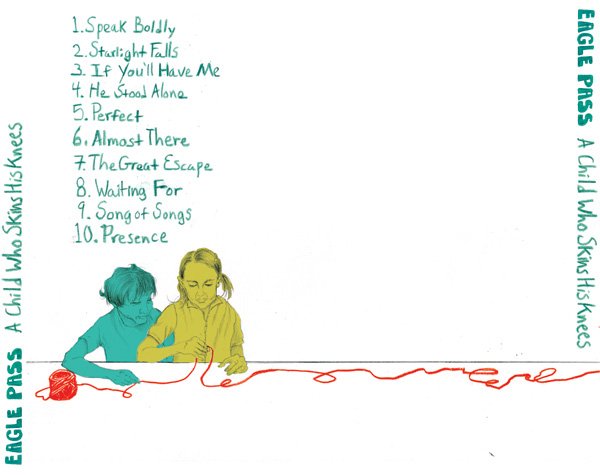 1. Speak Boldly
2. Starlight Falls
3. If You'll Have Me
4. He Stood Alone
5. Perfect
6. Almost There
7. The Great Escape
8. Waiting For
9. Song of Songs
10. Presence
EAGLE PASS A Child Who Skins His Knees
EAGLE PASS A Child Who Skins His Knees